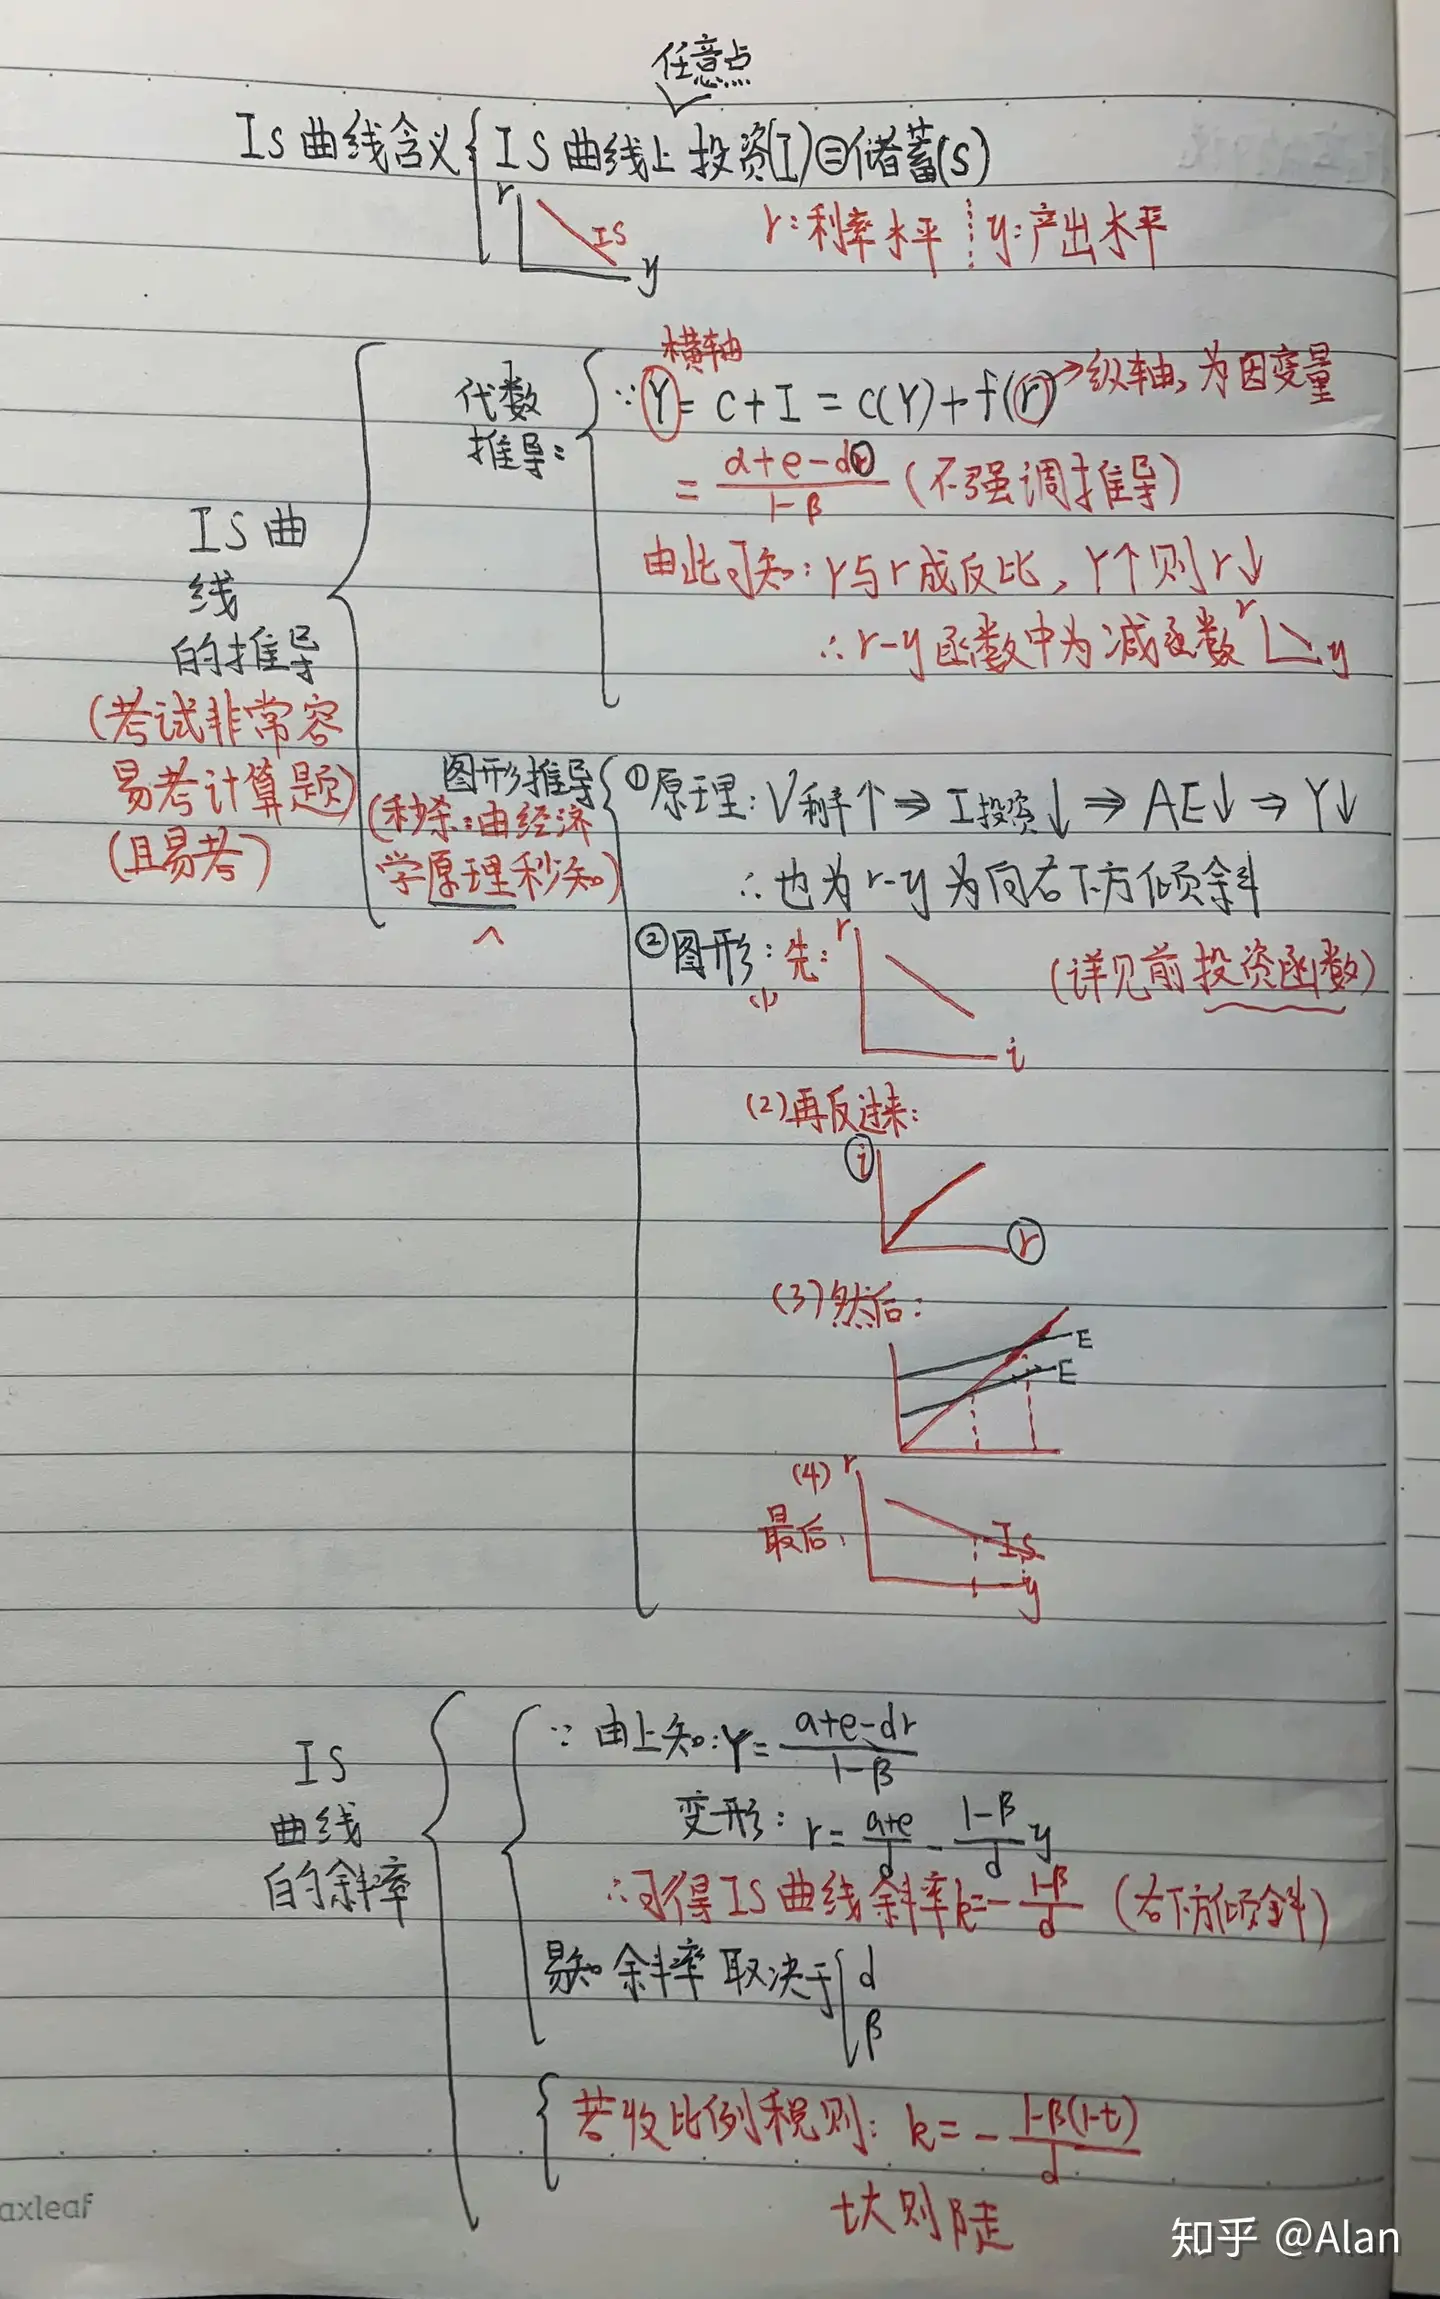 任意点
IS曲线含义 IS曲线上投资(I)=储蓄(S)
r IS y r:利率水平 y:产出水平
横轴
代数推导: ∵ Y = C + I = C(Y) + f(r) → 纵轴,为因变量
= (α+e-dr)/(1-β) (不强调推导)
由此可知:Y与r成反比,Y↑则r↓
∴r-y函数中为减函数 r y
IS曲线的推导
(考试非常容易考计算题)
(且易考)
图形推导
(秒杀:由经济学原理秒知)
①原理:V利率↑⇒I投资↓⇒AE↓⇒Y↓
∴也为r-y为向右下方倾斜
②图形:(1)先: r i (详见前投资函数)
(2)再反过来:
i r
(3)然后:
E
E
(4) r
最后, IS y
IS曲线的斜率
∵由上知:Y=(a+e-dr)/(1-β)
变形:r=(a+e)/d - (1-β)/d y
∴可得IS曲线斜率k=-(1-β)/d (右下方倾斜)
易知斜率取决于 d
β
若收比例税则:k=-(1-β(1-t))/d
t大则陡
axleaf
知乎 @Alan